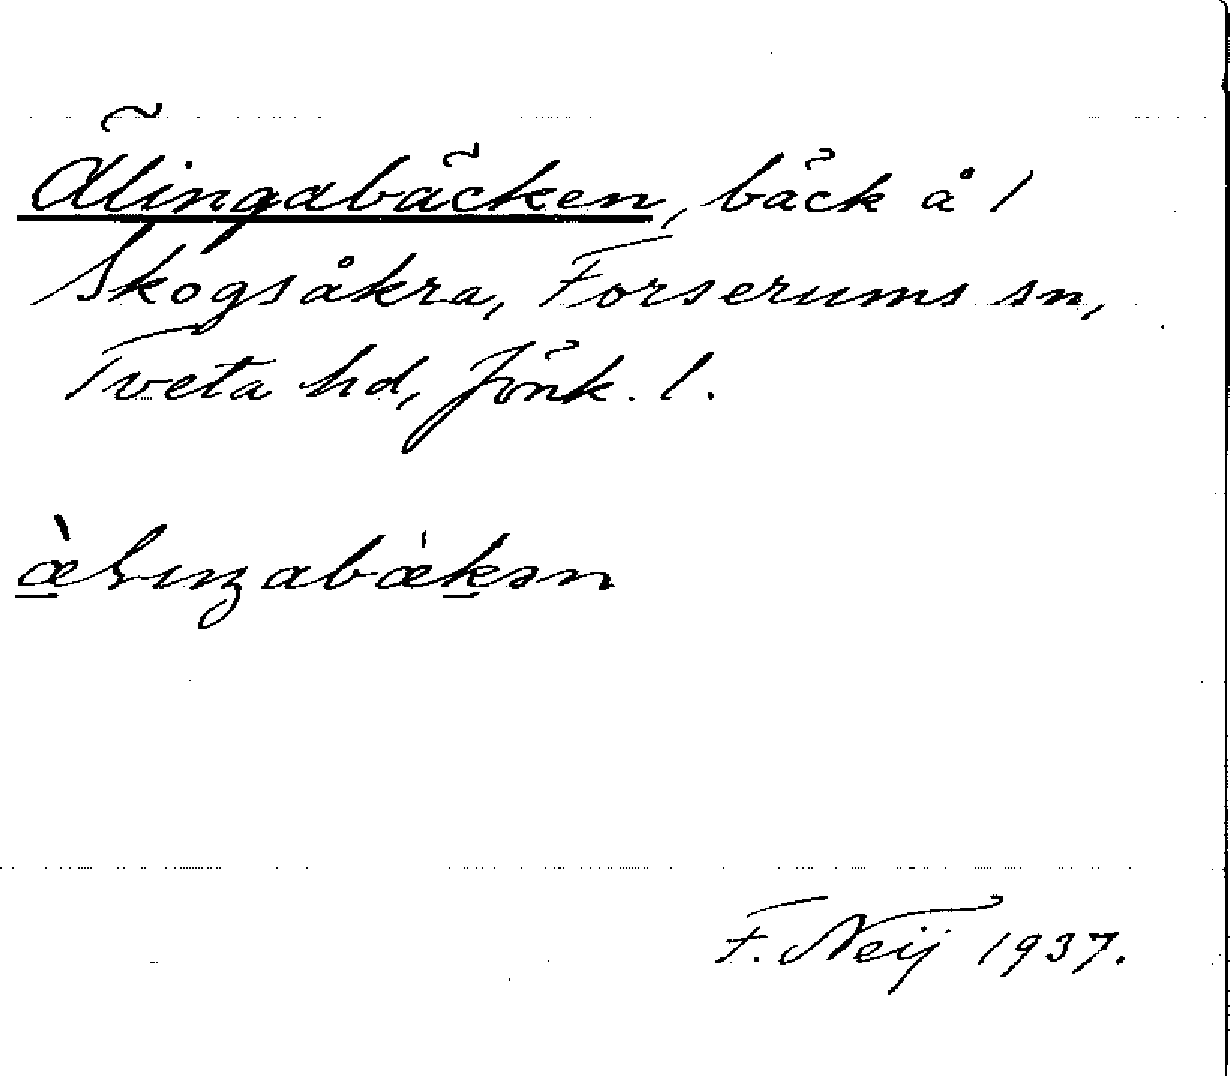 Älingabäcken, bäck å 1
Skogsåkra, Forserums sn,
Tveta hd, Jönk. l.
F. Neij 1937.